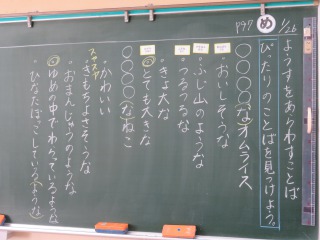 1/26
め
P97
ようすをあらわすことば
ぴったりのことばを見つけよう。
〇〇〇〇なオムライス
・おいしそうな
・ふじ山のような
・つるつるな
・きょ大な
・とても大きな
〇〇〇〇(な)ねこ
・かわいい
スヤスヤ
・きもちよさそうな
・おまんじゅうのような
・ゆめの中でわらっているような
・ひなたぼっこしている(ような)